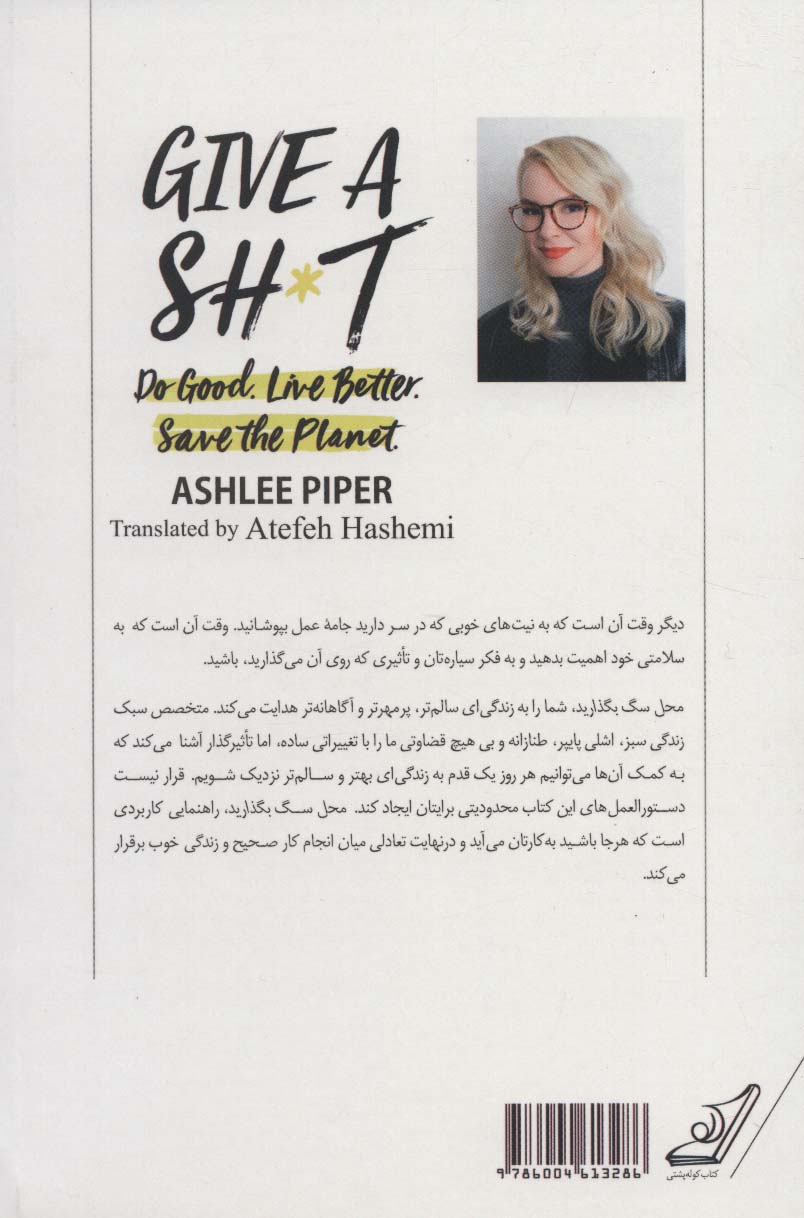 GIVE A
SH*T
Do Good. Live Better.
Save the Planet.
ASHLEE PIPER
Translated by Atefeh Hashemi
دیگر وقت آن است که به نیت‌های خوبی که در سر دارید جامۀ عمل بپوشانید. وقت آن است که به
سلامتی خود اهمیت بدهید و به فکر سیاره‌تان و تأثیری که روی آن می‌گذارید، باشید.
محل سگ بگذارید، شما را به زندگی‌ای سالم‌تر، پرمهرتر و آگاهانه‌تر هدایت می‌کند. متخصص سبک
زندگی سبز، اشلی پایپر، طنازانه و بی هیچ قضاوتی ما را با تغییراتی ساده، اما تأثیرگذار آشنا می‌کند که
به کمک آن‌ها می‌توانیم هر روز یک قدم به زندگی‌ای بهتر و سالم‌تر نزدیک شویم. قرار نیست
دستورالعمل‌های این کتاب محدودیتی برایتان ایجاد کند. محل سگ بگذارید، راهنمایی کاربردی
است که هرجا باشید به‌کارتان می‌آید و درنهایت تعادلی میان انجام کار صحیح و زندگی خوب برقرار
می‌کند.
9 786004 613286
کتاب کوله‌پشتی